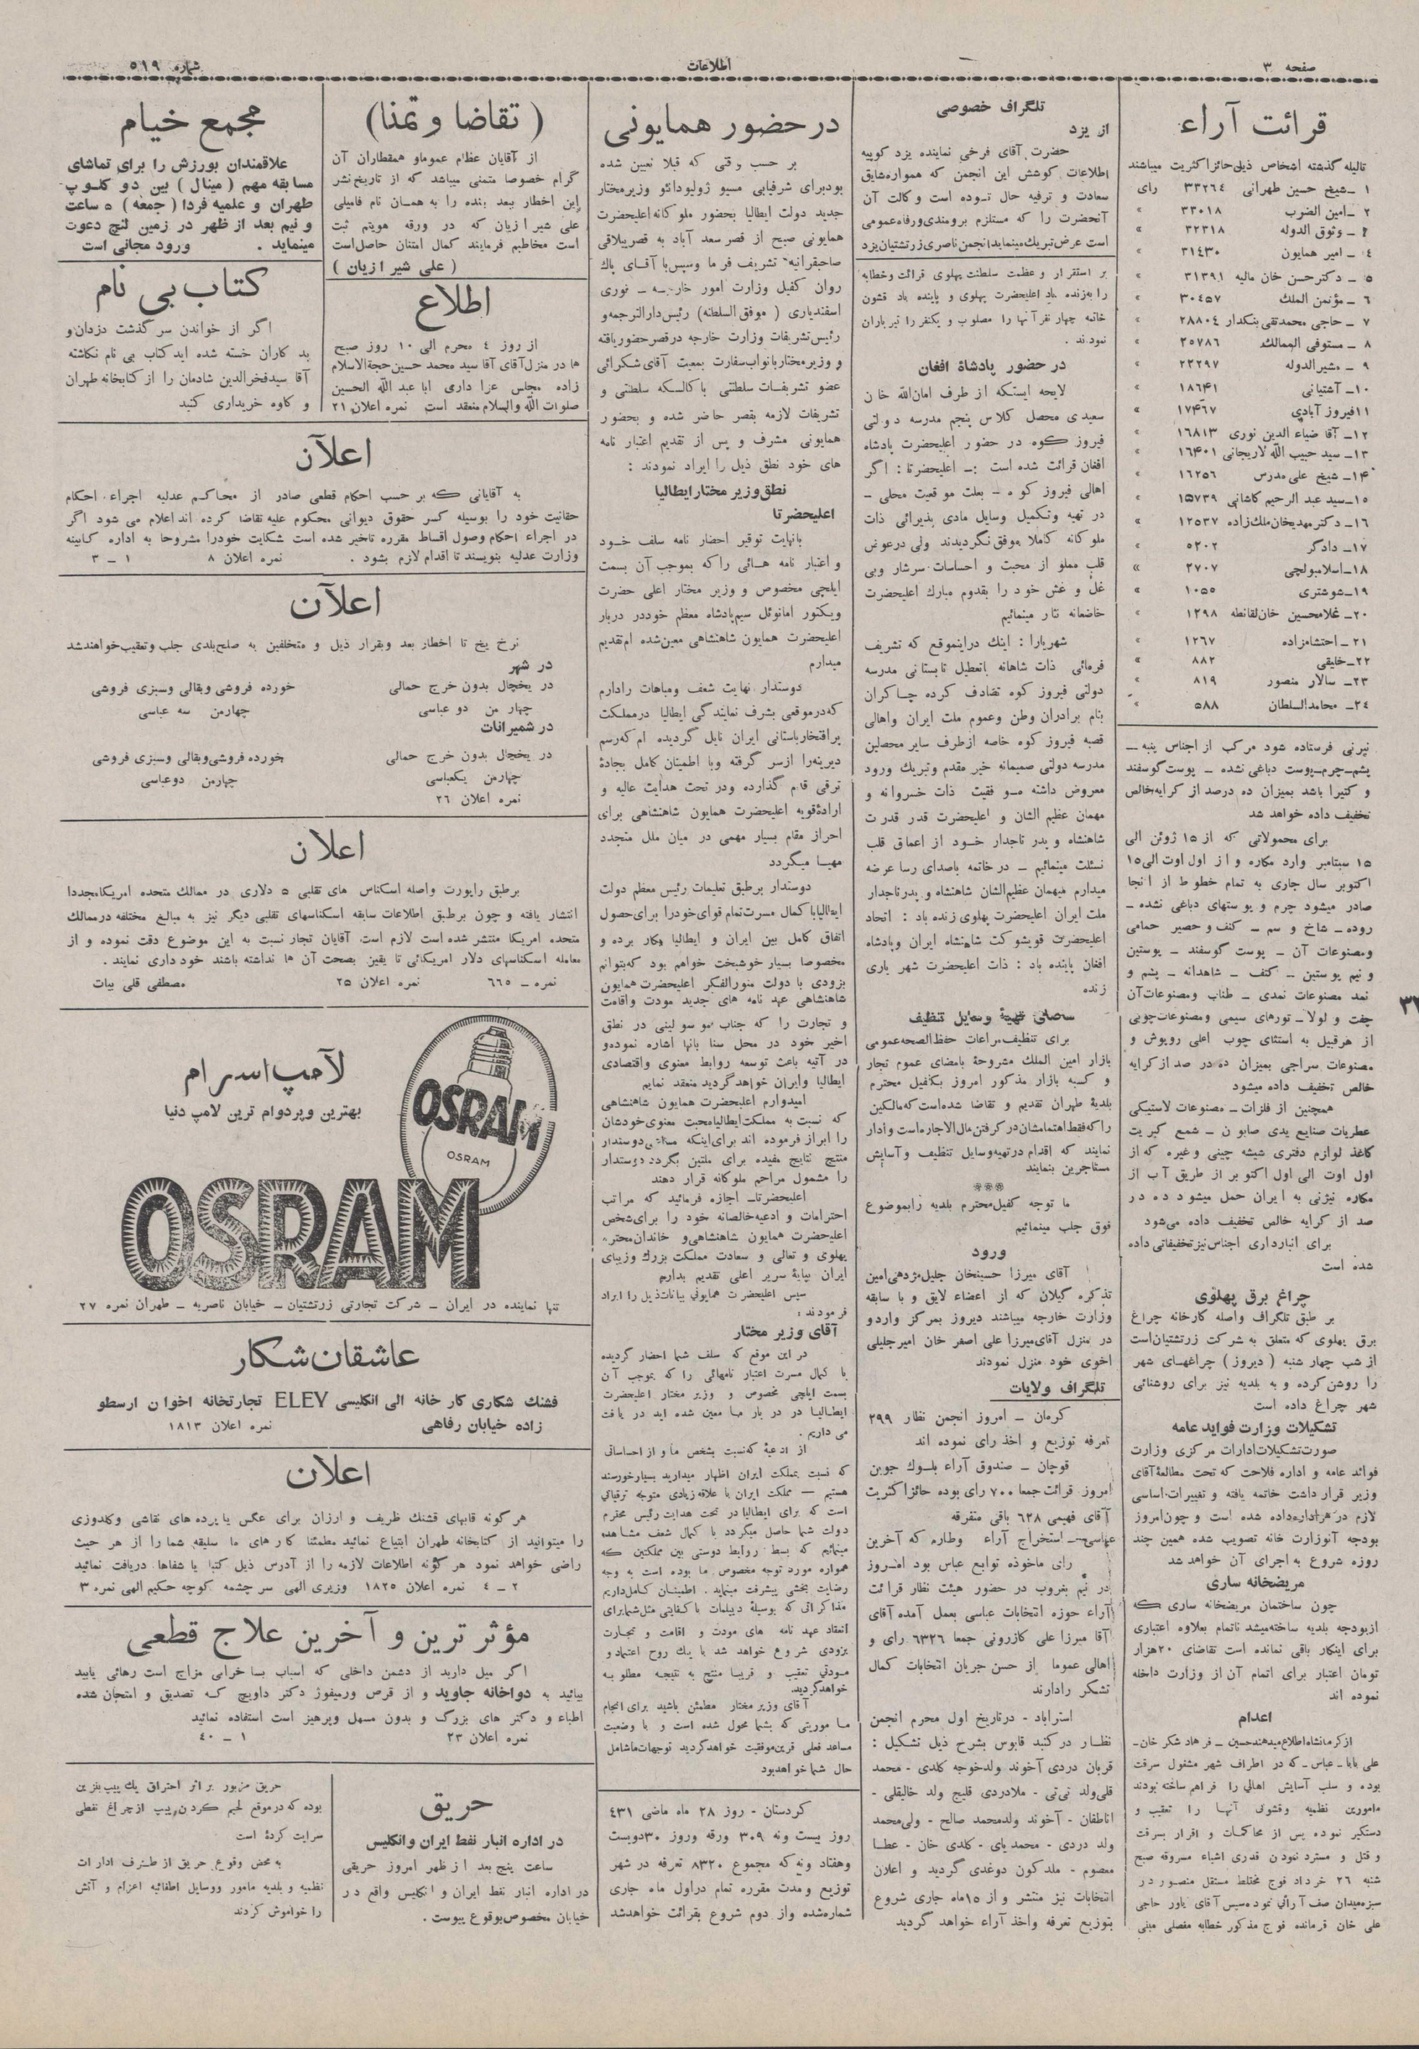 صفحه ۳
اطلاعات
شماره ۵۱۹
قرائت آراء
تالیله گذشته اشخاص ذیل حائز اکثریت میباشند
۱ ــ شیخ حسین طهرانی ۳۳۲۶۴ رای
۲ ــ امین الضرب ۳۳۰۱۸ »
ــ وثوق الدوله ۳۲۳۱۸ »
۴ ــ امیر همایون ۳۱۴۳۰ »
۵ ــ دکتر حسن خان مالیه ۳۱۳۹۱ »
۶ ــ مؤتمن الملك ۳۰۴۵۷ »
۷ ــ حاجی محمد تقی بنکدار ۲۸۸۰۴ »
۸ ــ مستوفی الممالك ۲۵۷۸۶ »
۹ ــ مشیر الدوله ۲۳۲۹۷ »
۱۰ــ آشتیانی ۱۸۶۴۱ »
۱۱ فیروز آبادی ۱۷۴۶۷ »
۱۲ــ آقا ضیاء الدین نوری ۱۶۸۱۳ »
۱۳ــ سید حبیب الله لاریجانی ۱۶۴۰۱ »
۱۴ــ شیخ علی مدرس ۱۶۲۵۶ »
۱۵ــ سید عبد الرحیم کاشانی ۱۵۷۳۹ »
۱۶ــ دکتر مهدیخان ملك زاده ۱۲۵۳۷ »
۱۷ــ دادگر ۵۲۰۲ »
۱۸ــ اسلامبولچی ۲۷۰۷ »
۱۹ــ شوشتری ۱۰۵۵ »
۲۰ــ غلامحسین خان لقانطه ۱۲۹۸ »
۲۱ ــ احتشامزاده ۱۲۶۷ »
۲۲ــ خلیقی ۸۸۲ »
۲۳ــ سالار منصور ۸۱۹ »
۲۴ــ محامد السلطان ۵۸۸
نیرنی فرستاده شود مرکب از اجناس پنبه ــ
پشم ــ چرم ــ پوست دباغی نشده ــ پوست گوسفند
و کتیرا باشد بمیزان ده درصد از کرایه خالص
تخفیف داده خواهد شد
برای محمولاتی که از ۱۵ ژوئن الی
۱۵ سپتامبر وارد مکاره و از اول اوت الی ۱۵
اکتوبر سال جاری به تمام خطوط از انجا
صادر میشود چرم و پوستهای دباغی نشده ــ
روده ــ شاخ و سم ــ کنف و حصیر حمامی
و مصنوعات آن ــ پوست گوسفند ــ پوستین
و نیم پوستین ــ کنف ــ شاهدانه ــ پشم و
نمد مصنوعات نمدی ــ طناب و مصنوعات آن
جفت و لولا ــ تورهای سیمی و مصنوعات چوبی
از هر قبیل به استثنای چوب اعلی روپوش و
مصنوعات سراجی بمیزان ده در صد از کرایه
خالص تخفیف داده میشود
همچنین از فلزات ــ مصنوعات لاستیکی
عطریات صنایع یدی صابون ــ شمع کبریت
کاغذ لوازم دفتری شیشه چینی و غیره که از
اول اوت الی اول اکتوبر از طریق آب از
مکاره نیژنی به ایران حمل میشود ده در
صد از کرایه خالص تخفیف داده می شود
برای انبارداری اجناس نیز تخفیفاتی داده
شده است
چراغ برق پهلوی
بر طبق تلگراف واصله کارخانه چراغ
برق پهلوی که متعلق به شرکت زرتشتیان است
از شب چهار شنبه ( دیروز ) چراغهای شهر
را روشن کرده و به بلدیه نیز برای روشنائی
شهر چراغ داده است
تشکیلات وزارت فواید عامه
صورت تشکیلات ادارات مرکزی وزارت
فوائد عامه و اداره فلاحت که تحت مطالعهٔ آقای
وزیر قرار داشت خاتمه یافته و تغییرات اساسی
لازم در هر اداره داده شده است و چون امروز
بودجه آنوزارت خانه تصویب شده همین چند
روزه شروع به اجرای آن خواهد شد
مریضخانه ساری
چون ساختمان مریضخانه ساری که
از بودجه بلدیه ساخته میشد ناتمام بعلاوه اعتباری
برای اینکار باقی نمانده است تقاضای ۲۰ هزار
تومان اعتبار برای اتمام آن از وزارت داخله
نموده اند
اعدام
از کرمانشاه اطلاع میدهند حسین ــ فرهاد شکر خان ــ
علی بابا ــ عباس ــ که در اطراف شهر مشغول سرقت
بوده و سلب آسایش اهالی را فراهم ساخته بودند
مامورین نظمیه وقشونی آنها را تعقیب و
دستگیر نموده پس از محاکمات و اقرار بسرقت
و قتل و مسترد نمودن قدری اشیاء مسروقه صبح
شنبه ۲۶ خرداد فوج مختلط مستقل منصور در
سبزه میدان صف آرائی نموده سپس آقای یاور حاجی
علی خان فرمانده فوج مذکور خطابه مفصلی مبنی
تلگراف خصوصی
از یزد
حضرت آقای فرخی نماینده یزد کوپیه
اطلاعات کوشش این انجمن که همواره شایق
سعادت و ترفیه حال توده است وکالت آن
آنحضرت را که مستلزم برومندی و رفاه عمومی
است عرض تبریك مینماید انجمن ناصری زرتشتیان یزد
بر استقرار و عظمت سلطنت پهلوی قرائت و خطابه
را به زنده باد اعلیحضرت پهلوی و پاینده باد قشون
خاتمه چهار نفر آنها را مصلوب و یکنفر را تیر باران
نمودند .
در حضور پادشاه افغان
لایحه ایستکه از طرف امان الله خان
سعیدی محصل کلاس پنجم مدرسه دولتی
فیروز کوه در حضور اعلیحضرت پادشاه
افغان قرائت شده است :ــ اعلیحضرتا : اگر
اهالی فیروز کوه ــ بعلت موقعیت محلی ــ
در تهیه و تکمیل وسایل مادی پذیرائی ذات
ملوکانه کاملا موفق نگردیدند ولی در عوض
قلب مملو از محبت و احساسات سرشار و بی
غل و غش خود را بقدوم مبارك اعلیحضرت
خاضعانه نثار مینمائیم
شهریارا : اینك در اینموقع که تشریف
فرمائی ذات شاهانه با تعطیل تابستانی مدرسه
دولتی فیروز کوه تصادف کرده چاکران
بنام برادران وطن و عموم ملت ایران و اهالی
قصبه فیروز کوه خاصه از طرف سایر محصلین
مدرسه دولتی صمیمانه خیر مقدم و تبریك ورود
معروض داشته موفقیت ذات خسروانه و
مهمان عظیم الشان و اعلیحضرت قدر قدرت
شاهنشاه و پدر تاجدار خود از اعماق قلب
مسئلت مینمائیم ــ در خاتمه باصدای رسا عرضه
میدارم میهمان عظیم الشان شاهنشاه و پدر تاجدار
ملت ایران اعلیحضرت پهلوی زنده باد : اتحاد
اعلیحضرت قویشوکت شاهنشاه ایران و پادشاه
افغان پاینده باد : ذات اعلیحضرت شهریاری
زنده
تهیهٔ وسایل تنظیف
برای تنظیف مراعات حفظ الصحه عمومی
بازار امین الملك مشروحهٔ بامضای عموم تجار
و کسبه بازار مذکور امروز بکفیل محترم
بلدیهٔ طهران تقدیم و تقاضا شده است که مالکین
را که فقط اهتمامشان در گرفتن مال الاجاره است وادار
نمایند که اقدام در تهیه وسایل تنظیف و آسایش
مستاجرین بنمایند
***
ما توجه کفیل محترم بلدیه را بموضوع
فوق جلب مینمائیم
ورود
آقای میرزا حسینخان جلیل مژدهی امین
تذکره گیلان که از اعضاء لایق و با سابقه
وزارت خارجه میباشند دیروز بمرکز وارد و
در منزل آقای میرزا علی اصغر خان امیر جلیلی
اخوی خود منزل نمودند
تلگراف ولایات
کرمان ــ امروز انجمن نظار ۲۹۹
تعرفه توزیع و اخذ رای نموده اند
قوچان ــ صندوق آراء بلوك جوین
امروز قرائت جمعا ۷۰۰ رای بوده حائز اکثریت
آقای فهیمی ۶۲۸ باقی متفرقه
عباسی ــ استخراج آراء وطاره که آخرین
رای ماخوذه توابع عباس بود امروز
در نیم بغروب در حضور هیئت نظار قرائت
آراء حوزه انتخابات عباسی بعمل آمده آقای
آقا میرزا علی کازرونی جمعا ۶۳۲۶ رای و
اهالی عموما از حسن جریان انتخابات کمال
تشکر را دارند
استراباد - در تاریخ اول محرم انجمن
نظار در گنبد قابوس بشرح ذیل تشکیل :
قربان دردی آخوند ولدخوجه کلدی - محمد
قلی ولد نی تی - ملادردی قلیج ولد خالقلی -
اناطقان - آخوند ولد محمد صالح - ولی محمد
ولد دردی - محمد پای - کلدی خان - عطا
معصوم - ملد کون دوغدی گردید و اعلان
انتخابات نیز منتشر و از ۱۵ ماه جاری شروع
بتوزیع تعرفه و اخذ آراء خواهد گردید
در حضور همایونی
بر حسب وقتی که قبلا تعیین شده
بود برای شرفیابی مسیو ژولیو دانئو وزیر مختار
جدید دولت ایطالیا بحضور ملوکانه اعلیحضرت
همایونی صبح از قصر سعد آباد به قصر ییلاقی
صاحبقرانیه تشریف فرما و سپس با آقای پاك
روان کفیل وزارت امور خارجه ــ نوری
اسفندیاری ( موفق السلطنه ) رئیس دارالترجمه و
رئیس تشریفات وزارت خارجه در قصر حضور یافته
و وزیر مختار با نواب سفارت بمعیت آقای شکرائی
عضو تشریفات سلطنتی با کالسکه سلطنتی و
تشریفات لازمه بقصر حاضر شده و بحضور
همایونی مشرف و پس از تقدیم اعتبار نامه
های خود نطق ذیل را ایراد نمودند :
نطق وزیر مختار ایطالیا
اعلیحضرتا
بانهایت توقیر احضار نامه سلف خود
و اعتبار نامه هائی را که بموجب آن بسمت
ایلچی مخصوص و وزیر مختار اعلی حضرت
ویکتور امانوئل سیم پادشاه معظم خود در دربار
اعلیحضرت همایون شاهنشاهی معین شده ام تقدیم
میدارم
دوستدار نهایت شعف و مباهات را دارم
که در موقعی بشرف نمایندگی ایطالیا در مملکت
پر افتخار باستانی ایران نایل گردیده ام که رسم
دیرینه را از سر گرفته و با اطمینان کامل بجادهٔ
ترقی قدم گذارده و در تحت هدایت عالیه و
ارادهٔ قویه اعلیحضرت همایون شاهنشاهی برای
احراز مقام بسیار مهمی در میان ملل متجدد
مهیا میگردد
دوستدار برطبق تعلیمات رئیس معظم دولت
ایطالیا با کمال مسرت تمام قوای خود را برای حصول
اتفاق کامل بین ایران و ایطالیا بکار برده و
مخصوصا بسیار خوشبخت خواهم بود که بتوانم
بزودی با دولت منور الفکر اعلیحضرت همایون
شاهنشاهی عهد نامه های جدید مودت و اقامت
و تجارت را که جناب موسولینی در نطق
اخیر خود در محل سنا بانها اشاره نموده و
در آتیه باعث توسعه روابط معنوی و اقتصادی
ایطالیا و ایران خواهد گردید منعقد نمایم
امیدوارم اعلیحضرت همایون شاهنشاهی
که نسبت به مملکت ایطالیا محبت معنوی خودشان
را ابراز فرموده اند برای اینکه دوستدار
منتج نتایج مفیده برای ملتین بگردد دوستدار
را مشمول مراحم ملوکانه قرار دهند
اعلیحضرتا ــ اجازه فرمائید که مراتب
احترامات و ادعیه خالصانه خود را برای شخص
اعلیحضرت همایون شاهنشاهی و خاندان محترم
پهلوی و تعالی و سعادت مملکت بزرك و زیبای
ایران بپایهٔ سریر اعلی تقدیم بدارم
سپس اعلیحضرت همایونی بیانات ذیل را ایراد
فرمودند :
آقای وزیر مختار
در این موقع که سلف شما احضار گردیده
با کمال مسرت اعتبار نامهائی را که بموجب آن
بسمت ایلچی مخصوص و وزیر مختار اعلیحضرت
ایطالیا در دربار ما معین شده اید دریافت
می داریم .
از ادعیهٔ که نسبت بشخص ما و از احساساتی
که نسبت بمملکت ایران اظهار میدارید بسیار خورسند
هستیم ــ مملکت ایران با علاقه زیادی متوجه ترقیاتی
است که برای ایطالیا در تحت هدایت رئیس محترم
دولت شما حاصل میگردد با کمال شعف مشاهده
مینمائیم که بسط روابط دوستی بین مملکتین که
همواره مورد توجه مخصوص ما بوده است به وجه
رضایت بخشی پیشرفت مینماید . اطمینان کامل داریم
مذاکراتی که بوسیلهٔ دیپلمات با کفایتی مثل شما برای
انعقاد عهد نامه های مودت و اقامت و تجارت
بزودی شروع خواهد شد با یك روح اعتماد و
مودتی تعقیب و قریبا منتج به نتیجه مطلوبه
خواهد گردید.
آقای وزیر مختار مطمئن باشید برای انجام
ماموریتی که بشما محول شده است و با وضعیت
مساعد فعلی قرین موفقیت خواهد گردید توجهات ما شامل
حال شما خواهد بود
کردستان - روز ۲۸ ماه ماضی ۴۳۱
روز بیست ونه ۳۰۹ ورقه و روز ۳۰ دویست
وهفتاد ونه که مجموع ۸۳۲۰ تعرفه در شهر
توزیع و مدت مقرره تمام در اول ماه جاری
شماره شده و از دوم شروع بقرائت خواهد شد
( تقاضا و تمنا )
از آقایان عظام عموما و همقطاران آن
گرام خصوصا متمنی میباشد که از تاریخ نشر
این اخطار ببعد بنده را به همان نام فامیلی
علی شیرازیان که در ورقه هویتم ثبت
است مخاطبم فرمایند کمال امتنان حاصل است
( علی شیرازیان )
اطلاع
از روز ٤ محرم الی ۱۰ روز صبح
ها در منزل آقای آقا سید محمد حسین حجة الاسلام
زاده مجلس عزا داری ابا عبد الله الحسین
صلوات الله والسلام منعقد است نمره اعلان ۲۱
مجمع خیام
علاقمندان بورزش را برای تماشای
مسابقه مهم ( مینال ) بین دو کلوپ
طهران و علمیه فردا ( جمعه ) ۵ ساعت
و نیم بعد از ظهر در زمین لنج دعوت
مینماید . ورود مجانی است
کتاب بی نام
اگر از خواندن سرگذشت دزدان و
بد کاران خسته شده اید کتاب بی نام نکاشته
آقا سید فخرالدین شادمان را از کتابخانه طهران
و کاوه خریداری کنید
اعلان
به آقایانی که بر حسب احکام قطعی صادر از محاکم عدلیه اجراء احکام
حقانیت خود را بوسیله کسر حقوق دیوانی محکوم علیه تقاضا کرده اند اعلام می شود اگر
در اجراء احکام وصول اقساط مقرره تاخیر شده است شکایت خود را مشروحا به اداره کابینه
وزارت عدلیه بنویسند تا اقدام لازم بشود . نمره اعلان ۸ ۱ ــ ۳
اعلان
نرخ یخ تا اخطار بعد و بقرار ذیل و متخلفین به صلح بلدی جلب و تعقیب خواهند شد
در شهر
در یخچال بدون خرج حمالی خورده فروشی و بقالی و سبزی فروشی
چهار من دو عباسی چهارمن سه عباسی
در شمیرانات
در یخچال بدون خرج حمالی خورده فروشی و بقالی و سبزی فروشی
چهارمن یکعباسی چهارمن دوعباسی
نمره اعلان ۲۶
اعلان
برطبق راپورت واصله اسکناس های تقلبی ۵ دلاری در ممالك متحده امریکا مجددا
انتشار یافته و چون برطبق اطلاعات سابقه اسکناسهای تقلبی دیگر نیز به مبالغ مختلفه در ممالك
متحده امریکا منتشر شده است لازم است آقایان تجار نسبت به این موضوع دقت نموده و از
معامله اسکناسهای دلار امریکائی تا یقین بصحت آن ها نداشته باشند خود داری نمایند .
نمره ــ ۶۶۵ نمره اعلان ۲۵ مصطفی قلی بیات
لامپ اسرام
بهترین و پردوام ترین لامپ دنیا
OSRAM
OSRAM
OSRAM
تنها نماینده در ایران ــ شرکت تجارتی زرتشتیان ــ خیابان ناصریه ــ طهران نمره ۲۷
عاشقان شکار
فشنك شکاری کار خانه الی انکلیسی ELEY تجارتخانه اخوان ارسطو
زاده خیابان رفاهی نمره اعلان ۱۸۱۳
اعلان
هر گونه قابهای قشنك ظریف و ارزان برای عکس یا پرده های نقاشی و گلدوزی
را میتوانید از کتابخانه طهران ابتیاع نمائید مطمئنا کار های ما سلیقه شما را از هر حیث
راضی خواهد نمود هر گونه اطلاعات لازمه را از آدرس ذیل کتبا یا شفاها دریافت نمائید
۲ ــ ٤ نمره اعلان ۱۸۲۵ وزیری الهی سر چشمه کوچه حکیم الهی نمره ۳
مؤثر ترین و آخرین علاج قطعی
اگر میل دارید از دشمن داخلی که اسباب بسا خرابی مزاج است رهائی یابید
بیائید به دواخانه جاوید و از قرص ورمیفوژ دکتر داویچ که تصدیق و امتحان شده
اطباء و دکتر های بزرگ و بدون مسهل و پرهیز است استفاده نمائید
نمره اعلان ۲۳ ۱ ــ ٤۰
حریق
در اداره انبار نفط ایران و انکلیس
ساعت پنج بعد از ظهر امروز حریقی
در اداره انبار نفط ایران و انکلیس واقع در
خیابان مخصوص بوقوع پیوست .
حریق مزبور بر اثر احتراق یك پیپ بنزین
بوده که در موقع لحیم کردن پیپ از چراغ نفطی
سرایت کرده است
به محض وقوع حریق از طرف ادارات
نظمیه و بلدیه مامور و وسایل اطفائیه اعزام و آتش
را خواموش کردند